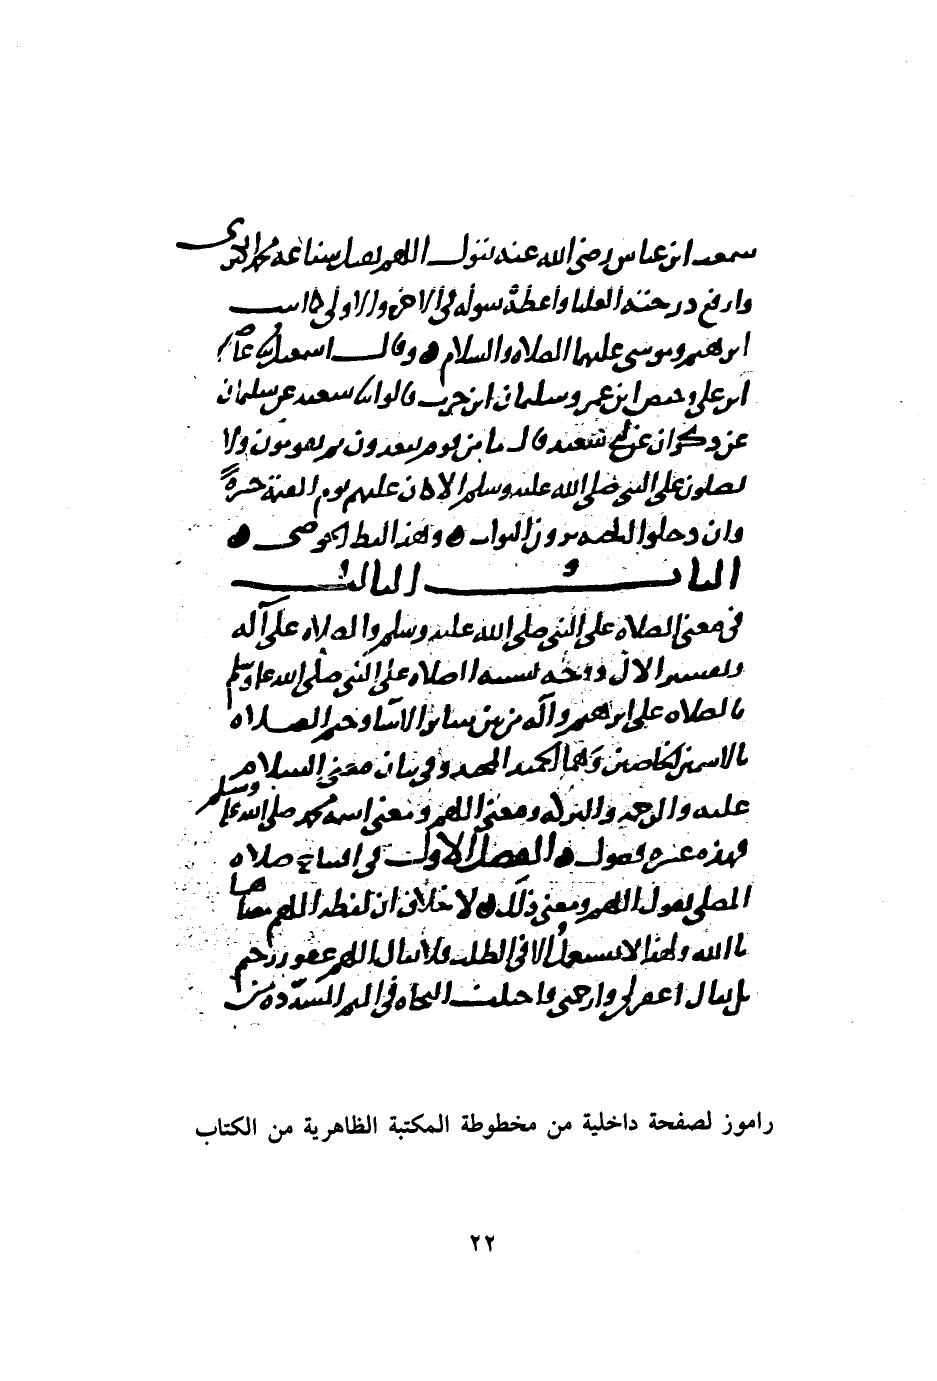 سمعت ابن عباس رضي الله عنه يقول اللهم تقبل شفاعة محمد الكبرى
وارفع درجته العليا واعطه سوله في الاخرة والاولى كما اتيت
ابرهيم وموسى عليهما الصلاة والسلام ٥ وقال اسمعيل
عاصم ابن علي وحفص ابن عمر وسليمان ابن حرب قالوا سعبه عن سليمان
عن ذكوان عن ابي سعيد قال ما من قوم يقعدون ثم يقومون ولا
يصلون على النبي صلى الله عليه وسلم الا كان عليهم يوم القيمة حسرة
وان دخلوا الجنة يرون الثواب ٥ وهذا لفظ الحوضي ٥
الباب الثالث
في معنى الصلاة على النبي صلى الله عليه وسلم والصلاة على آله
وتفسير الآل ووجه تشبيه الصلاة على النبي صلى الله عليه وسلم
بالصلاة على ابرهيم وآله من بين ساير الانبيا وختم الصلاة
بالاسمين الخاصين وهما الحميد المجيد وفي بيان معنى السلام
عليه والرحمة والبركة ومعنى اللهم ومعنى اسمه محمد صلى الله عليه وسلم
فهذه عشرة فصول ٥ الفصل الاول في افتتاح صلاة
المصلي بقول اللهم ومعنى ذلك ٥ لا خلاف ان لفظة اللهم معناها
يا الله ولهذا لا تستعمل الا في الطلب فلا يقال اللهم غفور رحيم
بل يقال اغفر لي وارحمني واختلف النحاة في الميم المشددة من
راموز لصفحة داخلية من مخطوطة المكتبة الظاهرية من الكتاب
٢٢